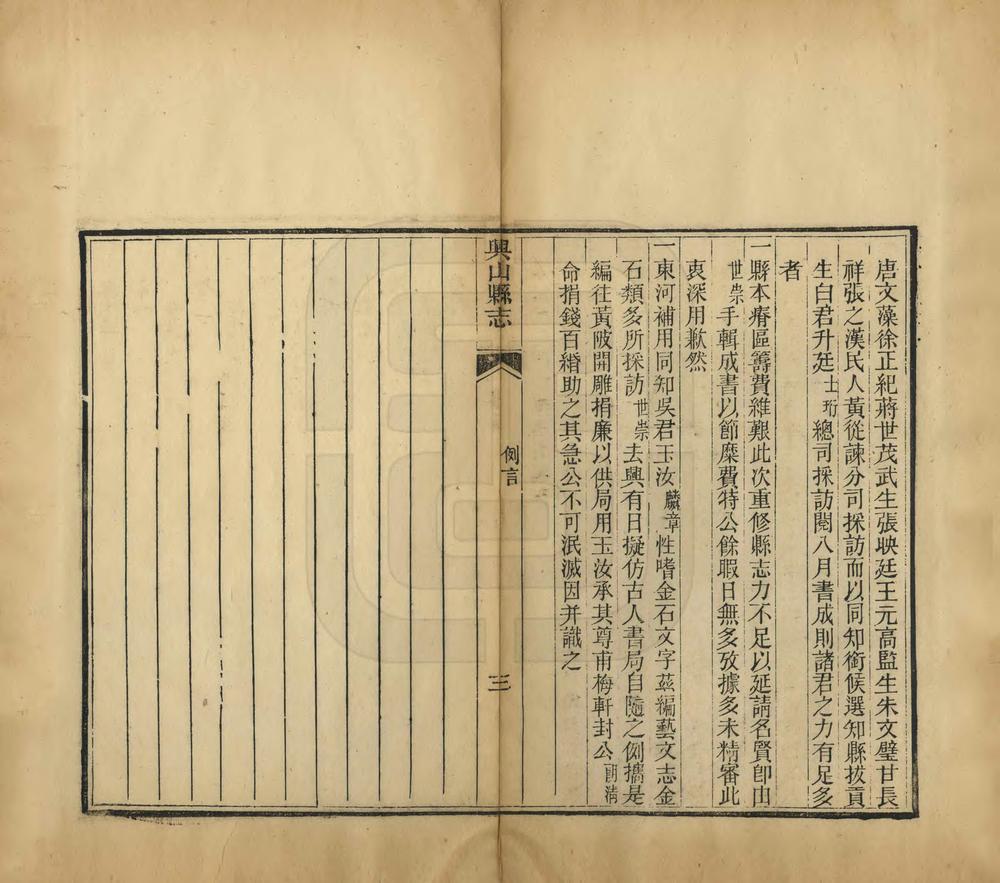 唐文藻徐正紀蔣世茂武生張映廷王元高監生朱文璧甘長
祥張之漢民人黃從諫分司採訪而以同知銜候選知縣拔貢
生白君升廷士珩總司採訪閱八月書成則諸君之力有足多
者
一縣本瘠區籌費維艱此次重修縣志力不足以延請名賢卽由
世崇手輯成書以節糜費特公餘暇日無多攷據多未精審此
衷深用歉然
一東河補用同知吳君玉汝麟章性嗜金石文字茲編藝文志金
石類多所採訪世崇去興有日擬仿古人書局自隨之例攜是
編往黃陂開雕捐廉以供局用玉汝承其尊甫梅軒封公嗣濤
命捐錢百緡助之其急公不可泯滅因并識之
興山縣志
例言
三